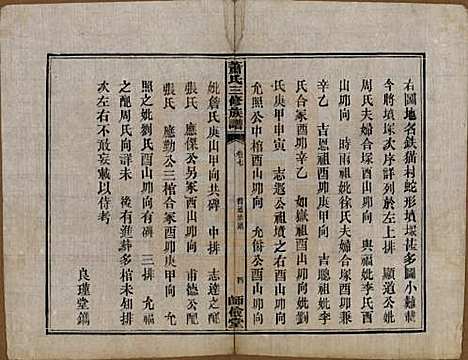 右圖地名鉄猫村蛇形墳堪祐多圖小難載
今將墳塚之次序詳列於左上排　顯道公妣
周氏夫婦合塚酉山卯向　與堯公妣李氏酉
山卯向　時雨妣徐氏夫婦合塚酉卯兼
辛乙　吉恩祖酉山卯向　吉聰祖妣
氏合冢酉卯辛乙　如嶽祖酉山卯向妣劉
氏庚甲申寅　志遐公祖墳之右酉山卯向
允照公中棺酉山卯向　允衡公酉山卯向
蕭氏三修族譜
卷七
師儉堂
妣詹氏庚山甲向共碑　中排　志達之配
張氏　應勤公三棺合冢酉卯庚甲向
照之妣劉氏酉山卯向有碑　三排　允福
之配周氏向詳未　後有進葬多棺未有碑
次左右不敢妄載以待考
良瑾堂鐫